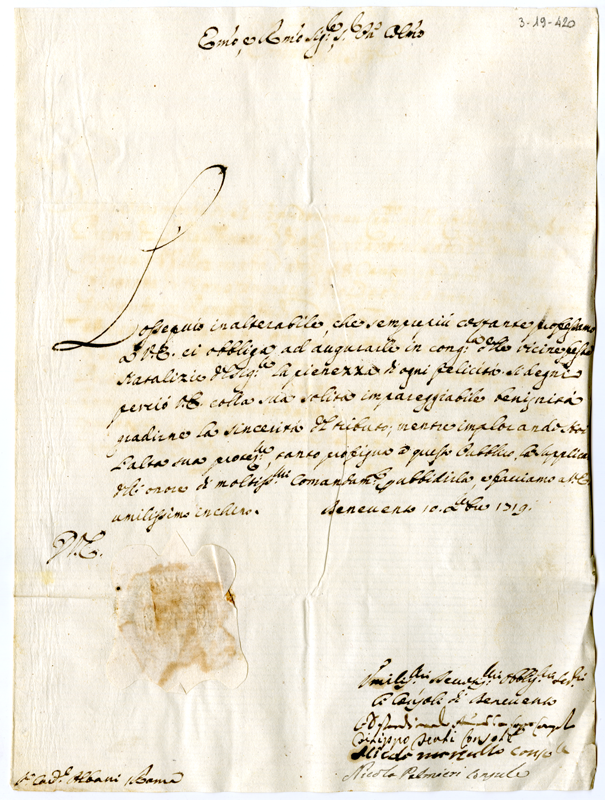 3-19-420
Em̃o, e Rm̃o Sig.re, Sig.re Pñ Colm̃o
L'ossequio inalterabile, che sempre più costante professiamo
à V.E. ci obbliga ad augurarle in cong.ra delle vicine feste
Natalizie del Sig.re la pienezza d'ogni felicità. Si degni
perciò V.E. colla sua solita impareggiabile benignità
gradirne la sincerità del tributo, mentre implorando Noi
l'alta sua protez.ne, tanto profigua à questo Pubblico, la supplica
dell'onore di moltiss.mi Comandam.ti p ubbidirla, e facciamo a V.E.
umilissimo inchino. Benevento 10. Xbre 1719.
D. V.E.
Umiliss.mi Devot.mi Obblig.mi Ser.ri
Li Consoli di Benevento
Filippo Console
Nicolò Console
Nicola Palmieri Console
Sr. Card.le Albani Roma